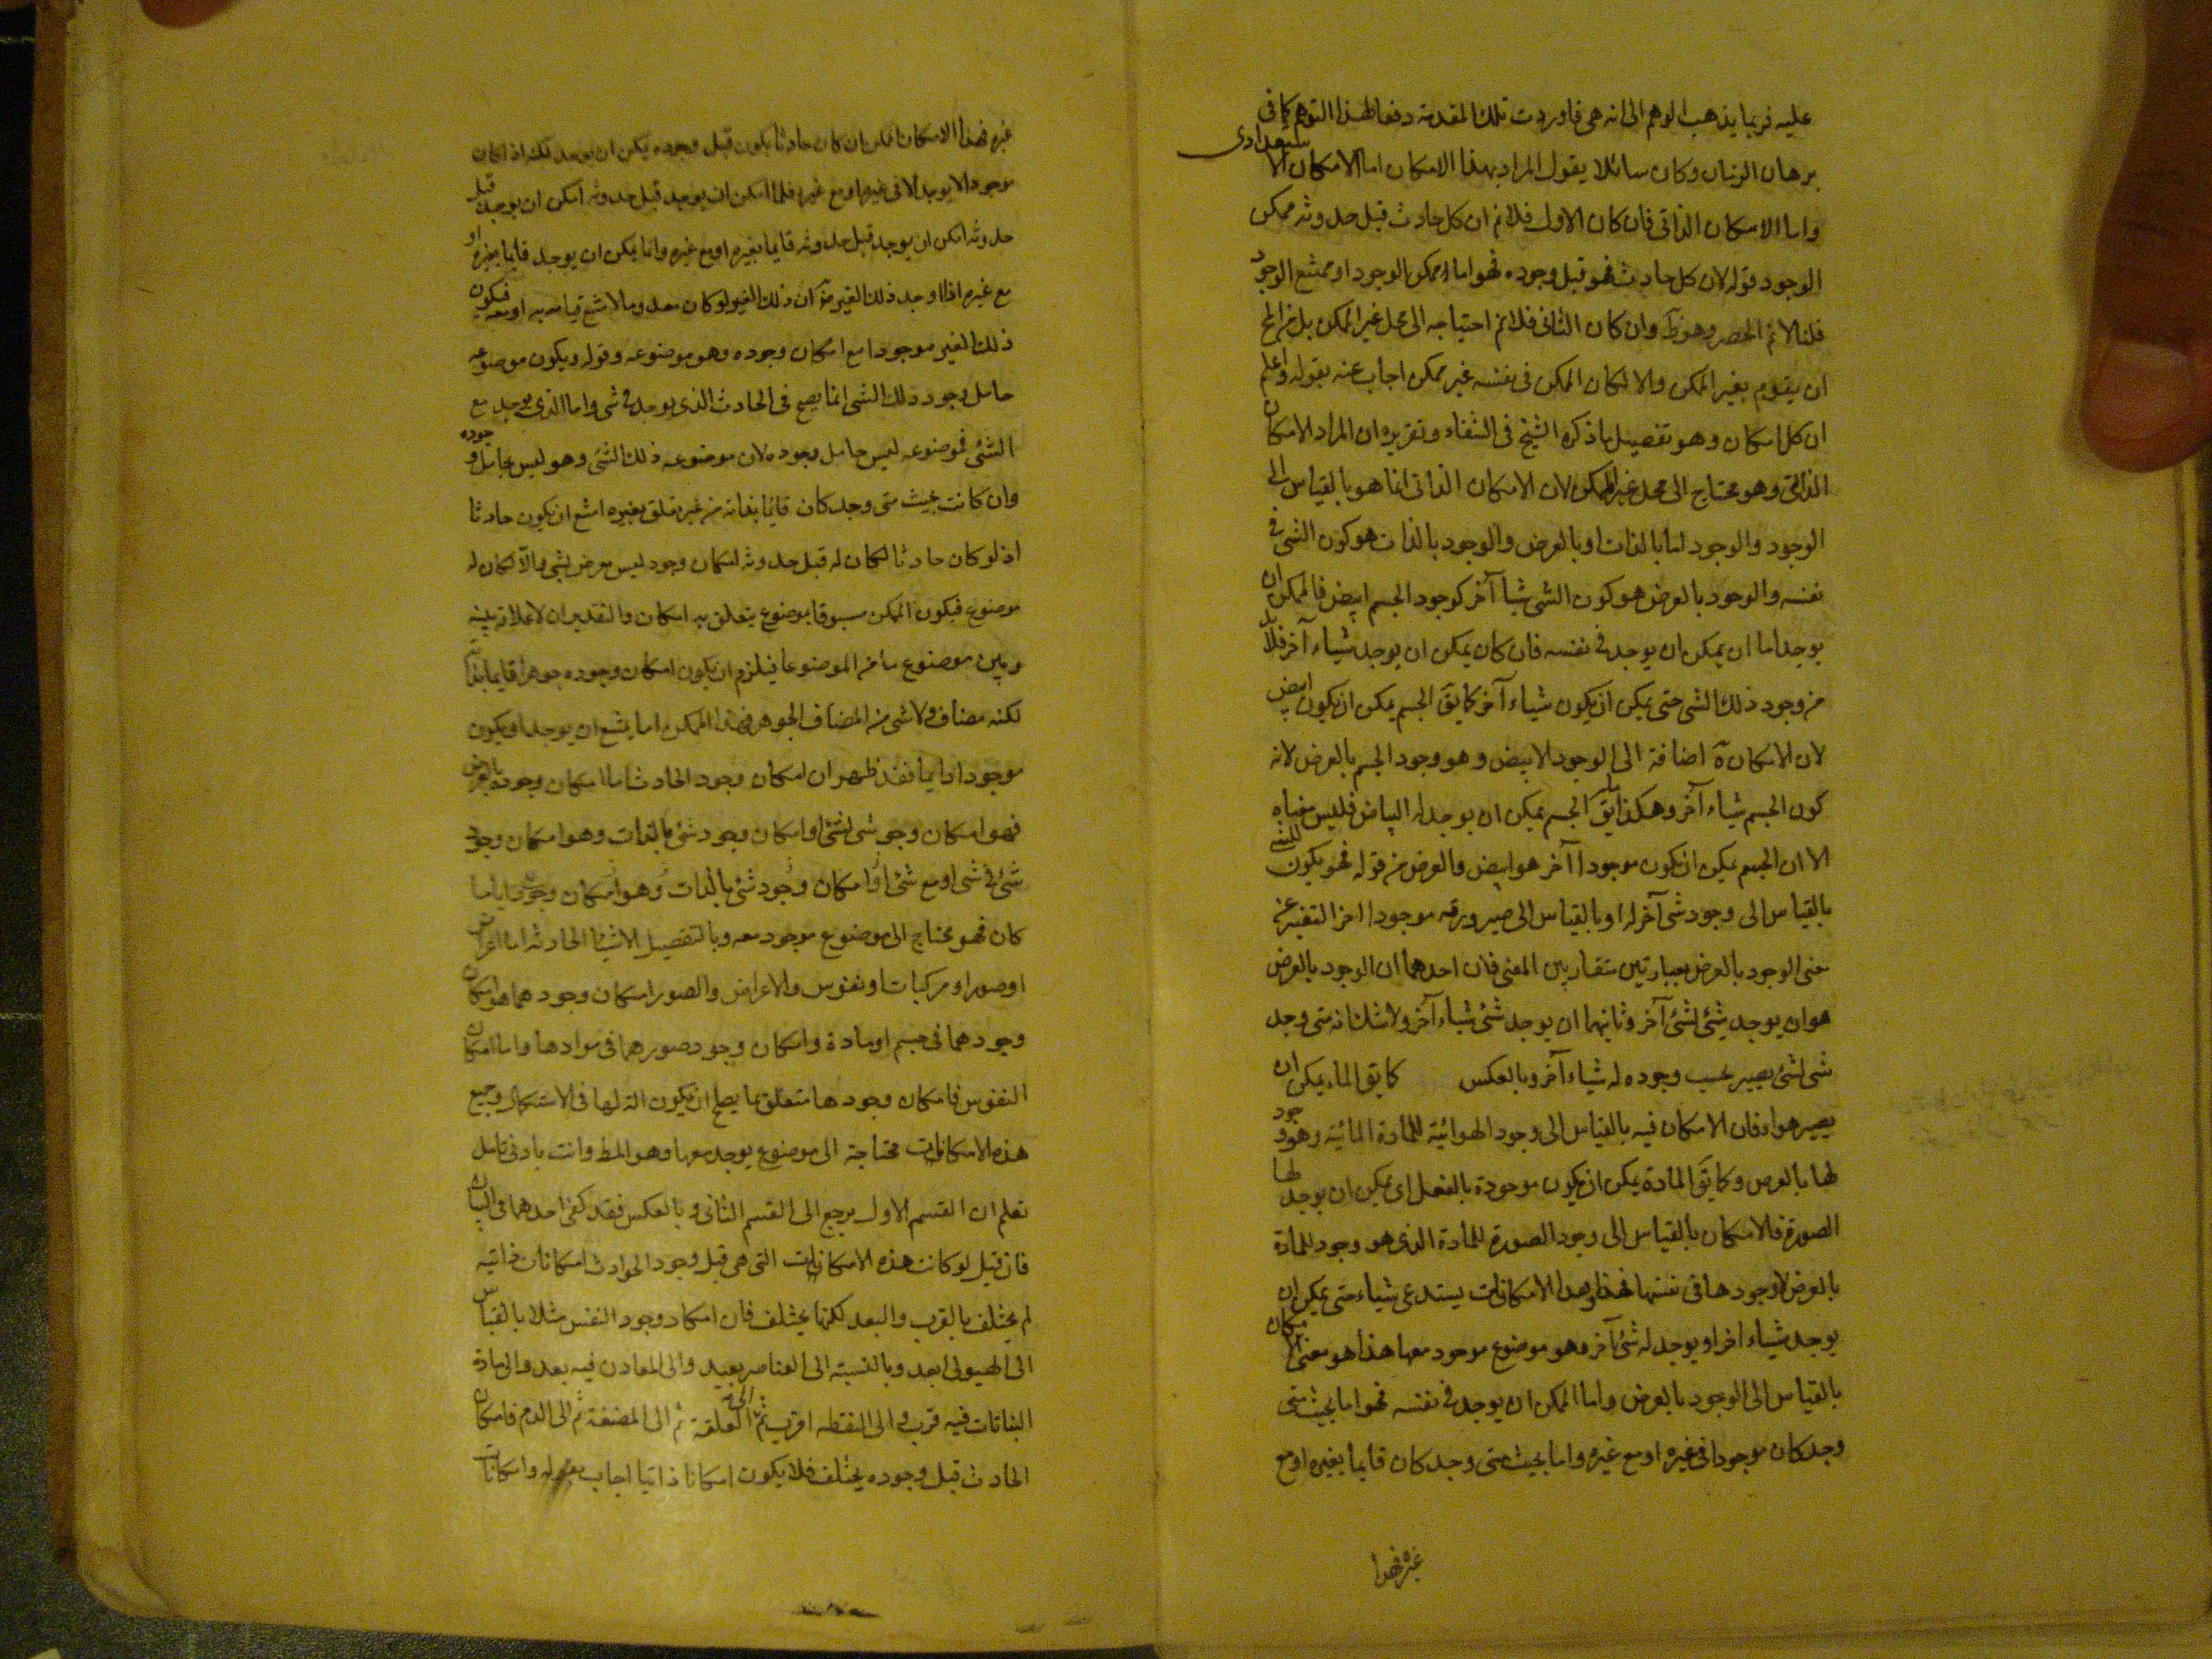 عليه فربما يذهب الوهم الى انه هى فاوردت تلك المقدمة دفعا لهذا التوهم كما فى
برهان الزمان وكان سائلا يقول المراد بهذا الامكان اما الامكان الاستعدادى
واما الامكان الذاتى فان كان الاول فلانم ان كل حادث قبل حدوثه ممكن
الوجود قوله لان كل حادث فهو قبل وجوده فهو اما ممكن الوجود او ممتنع الوجود
قلنا لانم الحصر وهو ظ وان كان الثانى فلانم احتياجه الى محل غير الممكن بل من المح
ان يقوم بغير الممكن والا لكان الممكن فى نفسه غير ممكن اجاب عنه بقوله واعلم
ان كل امكان وهو تفصيل ما ذكره الشيخ فى الشفاء وتقريره ان المراد الامكان
الذاتى وهو محتاج الى محل غير الممكن لان الامكان الذاتى انما هو بالقياس الى
الوجود والوجود اما بالذات او بالعرض والوجود بالذات هو كون الشى فى
نفسه والوجود بالعرض هو كون الشى شيأ آخر كوجود الجسم ابيض فالممكن ان
يوجد اما ان يمكن ان يوجد فى نفسه فان كان يمكن ان يوجد شياء آخر فلابد
من وجود ذلك الشى حتى يمكن ان يكون شياء آخر كما يق الجسم يمكن ان يكون ابيض
لان الامكان ة اضافة الى الوجود الابيض وهو وجود الجسم بالعرض لانه
كون الجسم شياء آخر وهكذا يق الجسم يمكن ان يوجد له البياض فليس معناه
الا ان الجسم يمكن ان يكون موجودا آخر هو ابيض والعرض من قوله فهو يكون للشى
بالقياس الى وجود شى آخر له او بالقياس الى صيرورته موجودا اخر التعبير عن
معنى الوجود بالعرض بعبارتين متقاربين المعنى فان احدهما ان الوجود بالعرض
هو ان يوجد شئ لشئ آخر وثانيهما ان يوجد شئ شياء آخر ولا شك انه متى وجد
شى لشئ يصير بحسب وجوده له شياء آخر وبالعكس كما يق الماء يمكن ان
يصير هواء فان الامكان فيه بالقياس الى وجود الهوائية للمادة المائية وهو وجود
لها بالعرض وكما يق المادة يمكن ان يكون موجودة بالفعل اى يمكن ان يوجد لها
الصورة فالامكان بالقياس الى وجود الصورة للمادة الذى هو وجود للمادة
بالعرض لا وجودها فى نفسها فهذا وهذا الامكانات يستدعى شياء حتى يمكن ان
يوجد شياء اخر او يوجد له شئ آخر وهو موضوع موجود معها هذا هو معنى الامكان
بالقياس الى الوجود بالعرض واما الممكن ان يوجد فى نفسه فهو اما بحيث متى
وجد كان موجودا فى غيره او مع غيره واما بحيث متى وجد كان قايما بغيره او مع
غيره فهذا
غيره فهذا الامكان الممكن ان كان حادثا يكون قبل وجوده يمكن ان يوجد لكنه اذا كان
موجودا لا يوجد الا فى غيره او مع غيره فلما امكن ان يوجد قبل حدوثه امكن ان يوجد قبل
حدوثه امكن ان يوجد قبل حدوثه قايما بغيره او مع غيره وانما يمكن ان يوجد قايما بغيره او
مع غيره اذا وجد ذلك الغير ان ذلك الغير لو كان معدوما لامتنع قيامه به او معه فيكون
ذلك الغير موجودا مع امكان وجوده وهو موضوعه وقوله ويكون موضوعه
حامل وجود ذلك الشى انما يصح فى الحادث الذى يوجد فى شى واما الذى يوجد مع
الشئ فموضوعه ليس حامل وجوده لان موضوعه ذلك الشئ وهو ليس بحامل وجوده
وان كانت بحيث متى وجد كان قايما بذاته من غير تعلق بغيره امتنع ان يكون حادثا
اذ لو كان حادثا لكان له قبل حدوثه امكان وجود ليس بعرض لشى والا لكان له
موضوع فيكون الممكن مسبوقا بموضوع يتعلق به امكان والتقدير ان لا علاقة بينه
وبين موضوع ما من الموضوعا فيلزم ان يكون امكان وجوده جوهرا قايما بذاته
لكنه مضاف ولا شى من المضاف الجوهر فهذا الممكن اما يمتنع ان يوجد او يكون
موجودا دايما فقد ظهر ان امكان وجود الحادث اما امكان وجوده بالعرض
فهو امكان وجود شى لشئ او امكان وجود شئ بالذات وهو امكان وجود
شئ فى شى او مع شئ او امكان وجود شئ بالذات وهو امكان وجود وايا ما
كان فهو محتاج الى موضوع موجود معه وبالتفصيل الاشياء الحادثه اما اعراض
او صور او مركبات او نفوس والاعراض والصور امكان وجودهما هو امكان
وجودهما فى جسم او مادة وامكان وجود صورهما فى موادها واما امكان
النفوس فامكان وجودها متعلق بما يصلح ان يكون الة لها فى الاستكمال وجميع
هذه الامكانات محتاجة الى موضوع يوجد معها وهو المط وانت بادنى تامل
تعلم ان القسم الاول يرجع الى القسم الثانى وبالعكس فقد كفى احدهما فى البيان
فان قيل لو كانت هذه الامكانات التى هى قبل وجود الحوادث امكانات ذاتيه
لم يختلف بالقرب والبعد لكنها يختلف فان امكان وجود النفس مثلا بالقياس
الى الهيولى ابعد وبالنسبة الى العناصر بعيد والى المعادن فيه بعد والى مادة
النباتات فيه قرب والى النفطه اقرب ثم الى العلقة ثم الى المضغة ثم الى الدم فامكان
الحادث قبل وجوده يختلف فلا يكون امكانا ذاتيا اجاب بقوله وامكانات